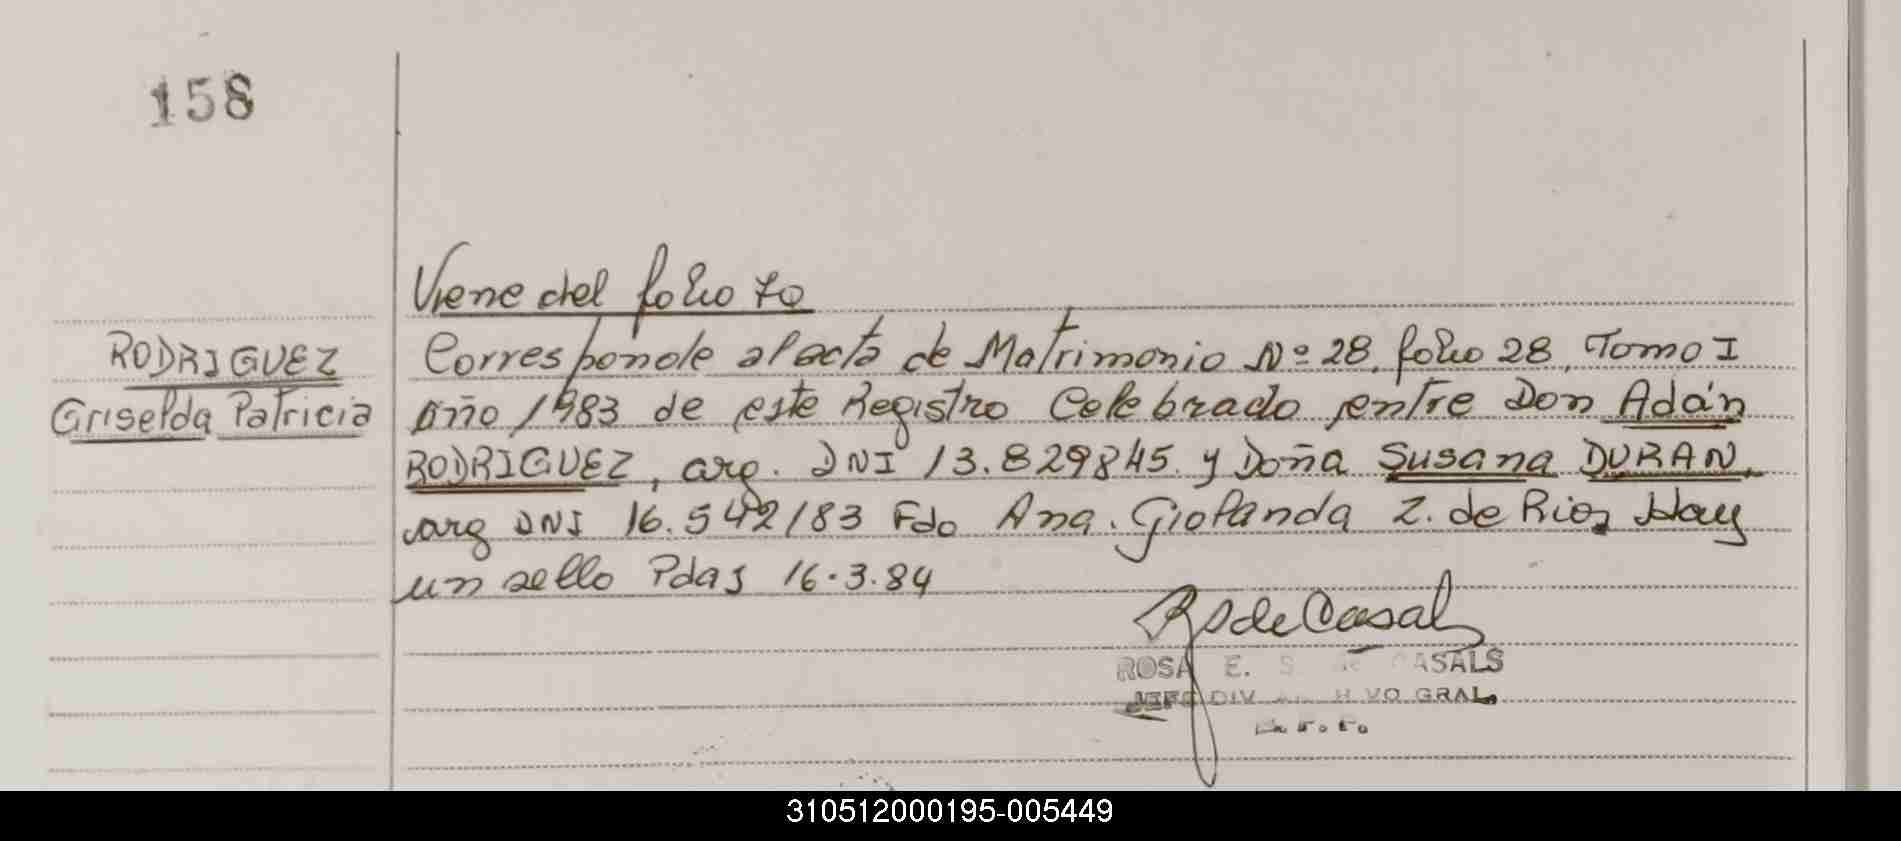 158
Viene del folio 70
RODRIGUEZ
Griselda Patricia
Corresponde al acta de Matrimonio Nº 28, folio 28, Tomo I
año 1983 de este Registro Celebrado entre Don Adán
RODRIGUEZ, arg. DNI 13.829845 y Doña Susana DURAN,
arg DNI 16.542183 Fdo Ana. Giolanda Z. de Rios Hay
un sello Pdas 16.3.84
RS de Casals
ROSA E. S. de CASALS
JEFE DIV. ARCHIVO GRAL.
310512000195-005449